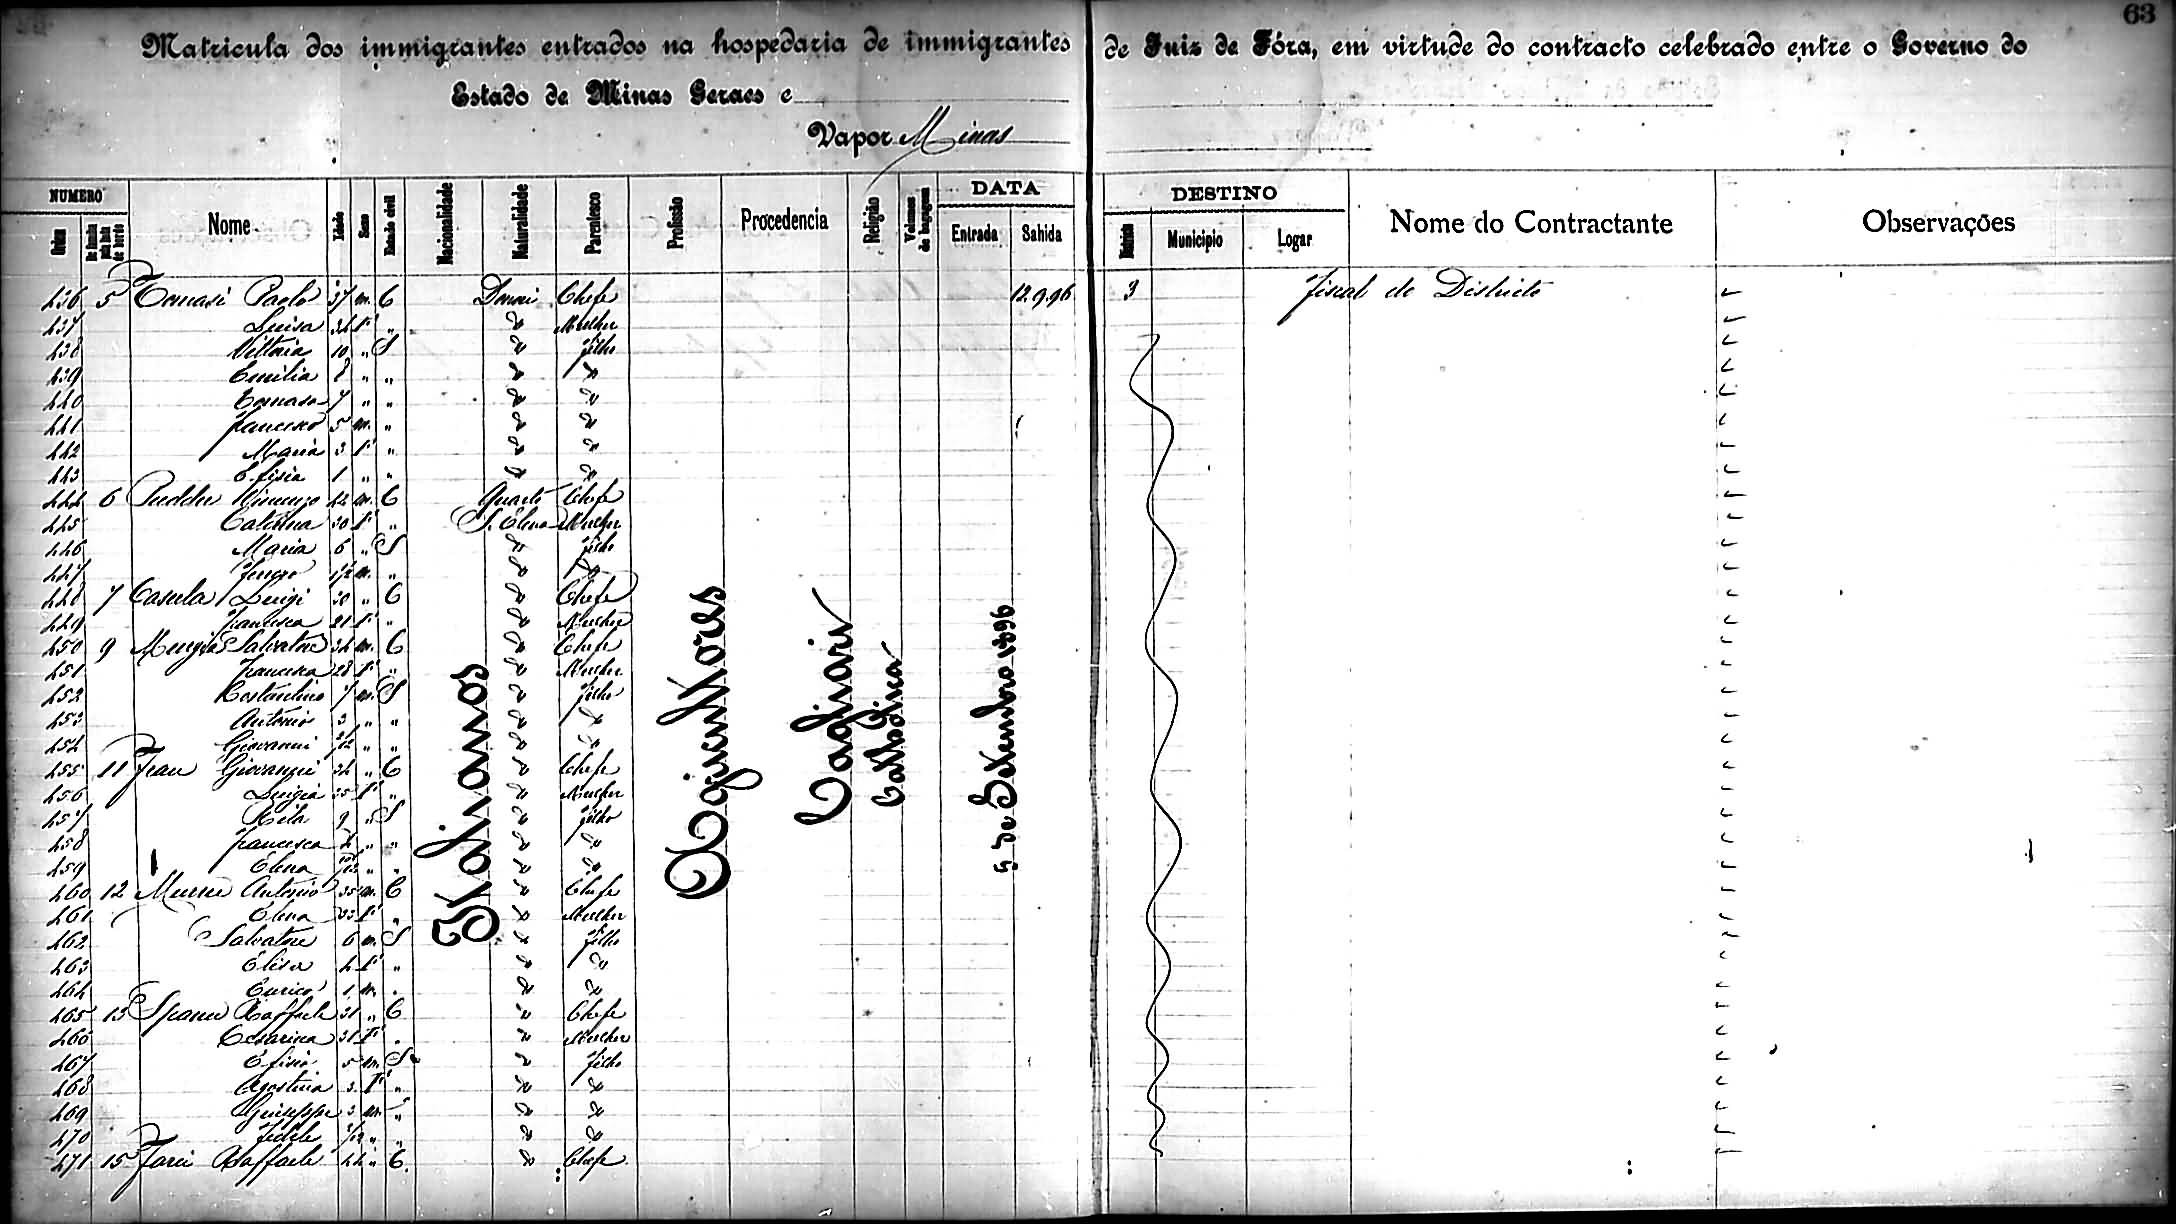 63
Matricula dos immigrantes entrados na hospedaria de immigrantes de Juiz de Fóra, em virtude do contracto celebrado entre o Governo do
Estado de Minas Geraes e
Vapor Minas
NUMERO Nome Idade Sexo Estado civil Nacionalidade Naturalidade Parentesco Profissão Procedencia Religião Volumes de bagagem DATA DESTINO Nome do Contractante Observações
Ordem De familia pela lista de bordo Entrada Sahida Districto Municipio Logar
Italianos Agricultores Cagliari Catholica 9 de Setembro 1896
436 5 Tomasi Paolo 37 m. C Donori Chefe 12.9.96 3 fiscal do Districto
437 Luisa 34 f " " Mulher
438 Vittoria 10 " S " filho
439 Emilia 8 " " " "
440 Tomaso 7 " " " "
441 Francesco 5 m. " " "
442 Maria 3 f " " "
443 Efisia 1 " " " "
444 6 Puddu Vincenzo 42 m. C Quartu Chefe
445 Caterina 30 f " S. Elena Mulher
446 Maria 6 " S " filho
447 m. " " "
448 7 Casula Luigi 30 " C " Chefe
449 Francesca 21 f " " Mulher
450 9 Salvatore 34 m. C " Chefe
451 Francesca 28 f " " Mulher
452 Costantino 7 m. S " filho
453 Antonio 3 " " " "
454 Giovanni " " " "
455 11 Frau Giovanni 34 " C " Chefe
456 Luigia 25 f " " Mulher
457 Rita 9 " S " filho
458 Francesca " " " "
459 Elena " " " "
460 12 Murru Antonio 35 m. C " Chefe
461 Elena 33 f " " Mulher
462 Salvatore 6 m. S " filho
463 Elisa 4 f " " "
464 Enrico 1 m. " " "
465 13 Spanu Raffaele 31 " C " Chefe
466 Cesarina 31 f " " Mulher
467 Efisio 5 m. S " filho
468 Agostina 3 f " " "
469 Giuseppe 3 m. " " "
470 Fedele " " " "
471 15 Farci Raffaele 44 " C. " Chefe